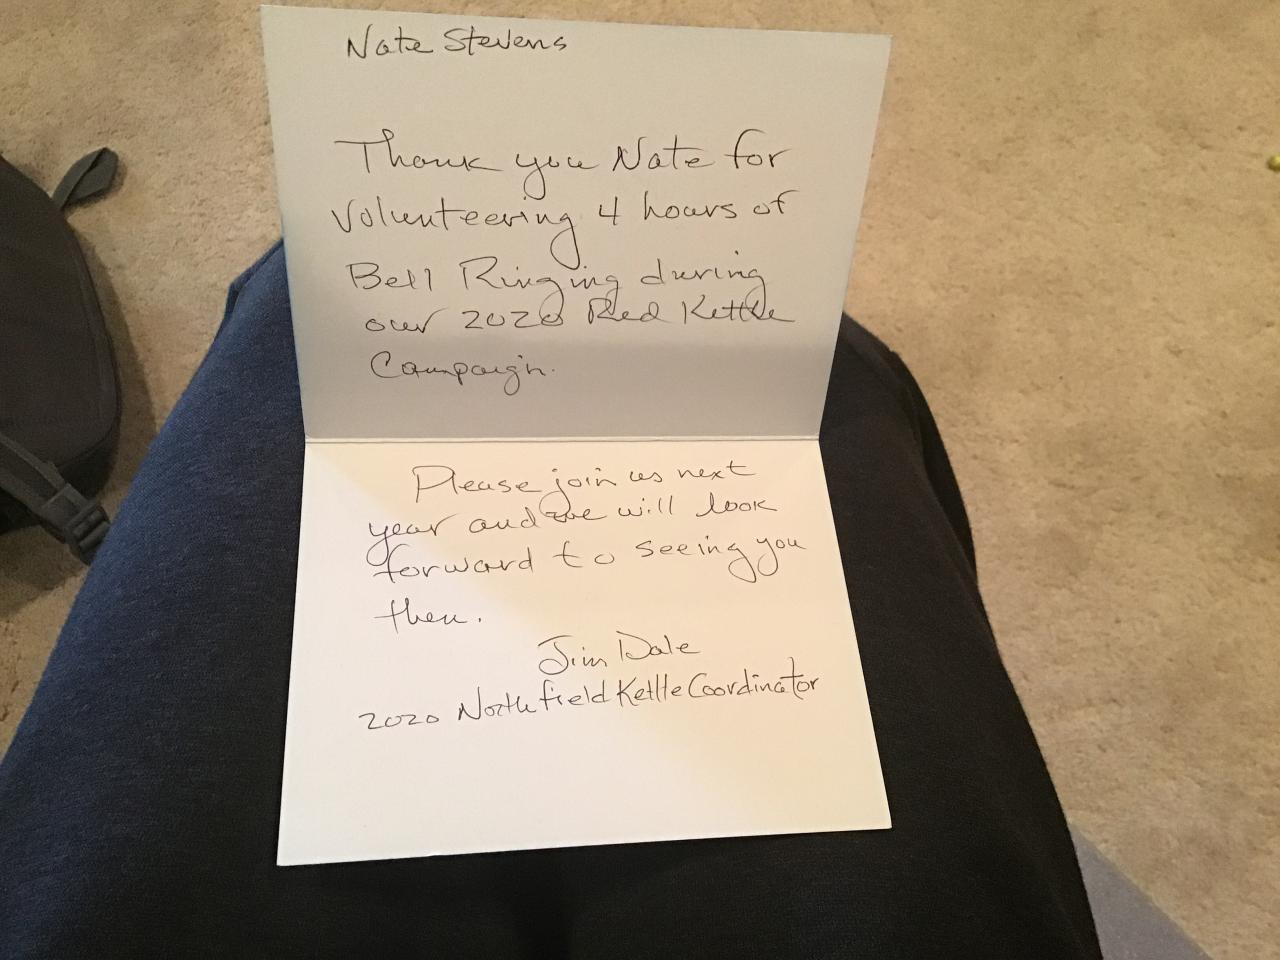 Nate Stevens
Thank you Nate for
Volunteering 4 hours of
Bell Ringing during
our 2020 Red Kettle
Campaign.
Please join us next
year and we will look
forward to seeing you
then.
Jim Dale
2020 Northfield Kettle Coordinator